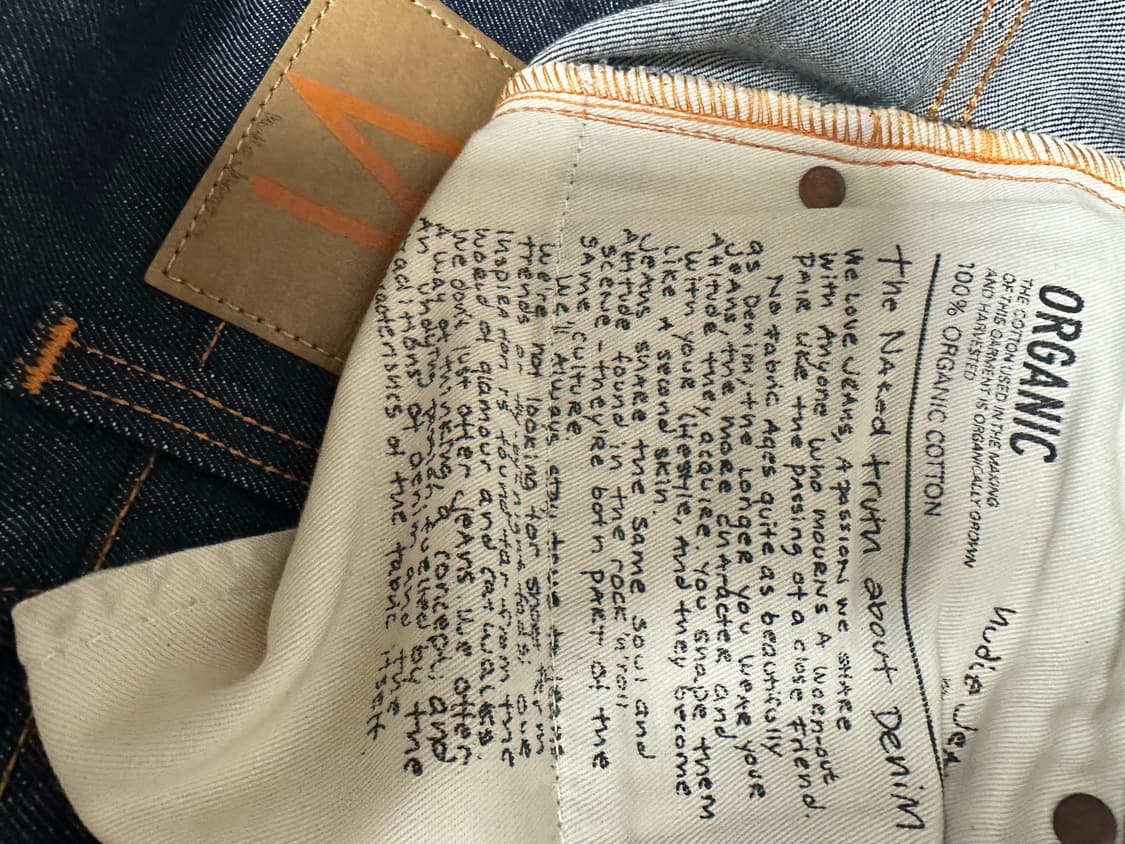 ORGANIC
THE COTTON USED IN THE MAKING
OF THIS GARMENT IS ORGANICALLY GROWN
AND HARVESTED
100% ORGANIC COTTON
nudie
the Naked truth about Denim
We love jeans, A passion we share
with Anyone who mourns A worn-out
pair like the passing of a close friend.
No fabric Ages quite as beautifully
as Denim, the longer you wear your
Jeans, the more character and
Attitude they acquire. You shape them
with your lifestyle, And they become
like a second skin.
Jeans share the same soul and
Attitude found in the rock'n'roll
scene - they're both part of the
same culture.
We'll Always stay true to
We're not looking for short term
trends or our
inspiration is found far from the
world of glamour and catwalks.
We don't just offer jeans we offer
A way of thinking, a concept, and
An fuelled by the
traditions of denim and the
characteristics of the fabric itself.
N